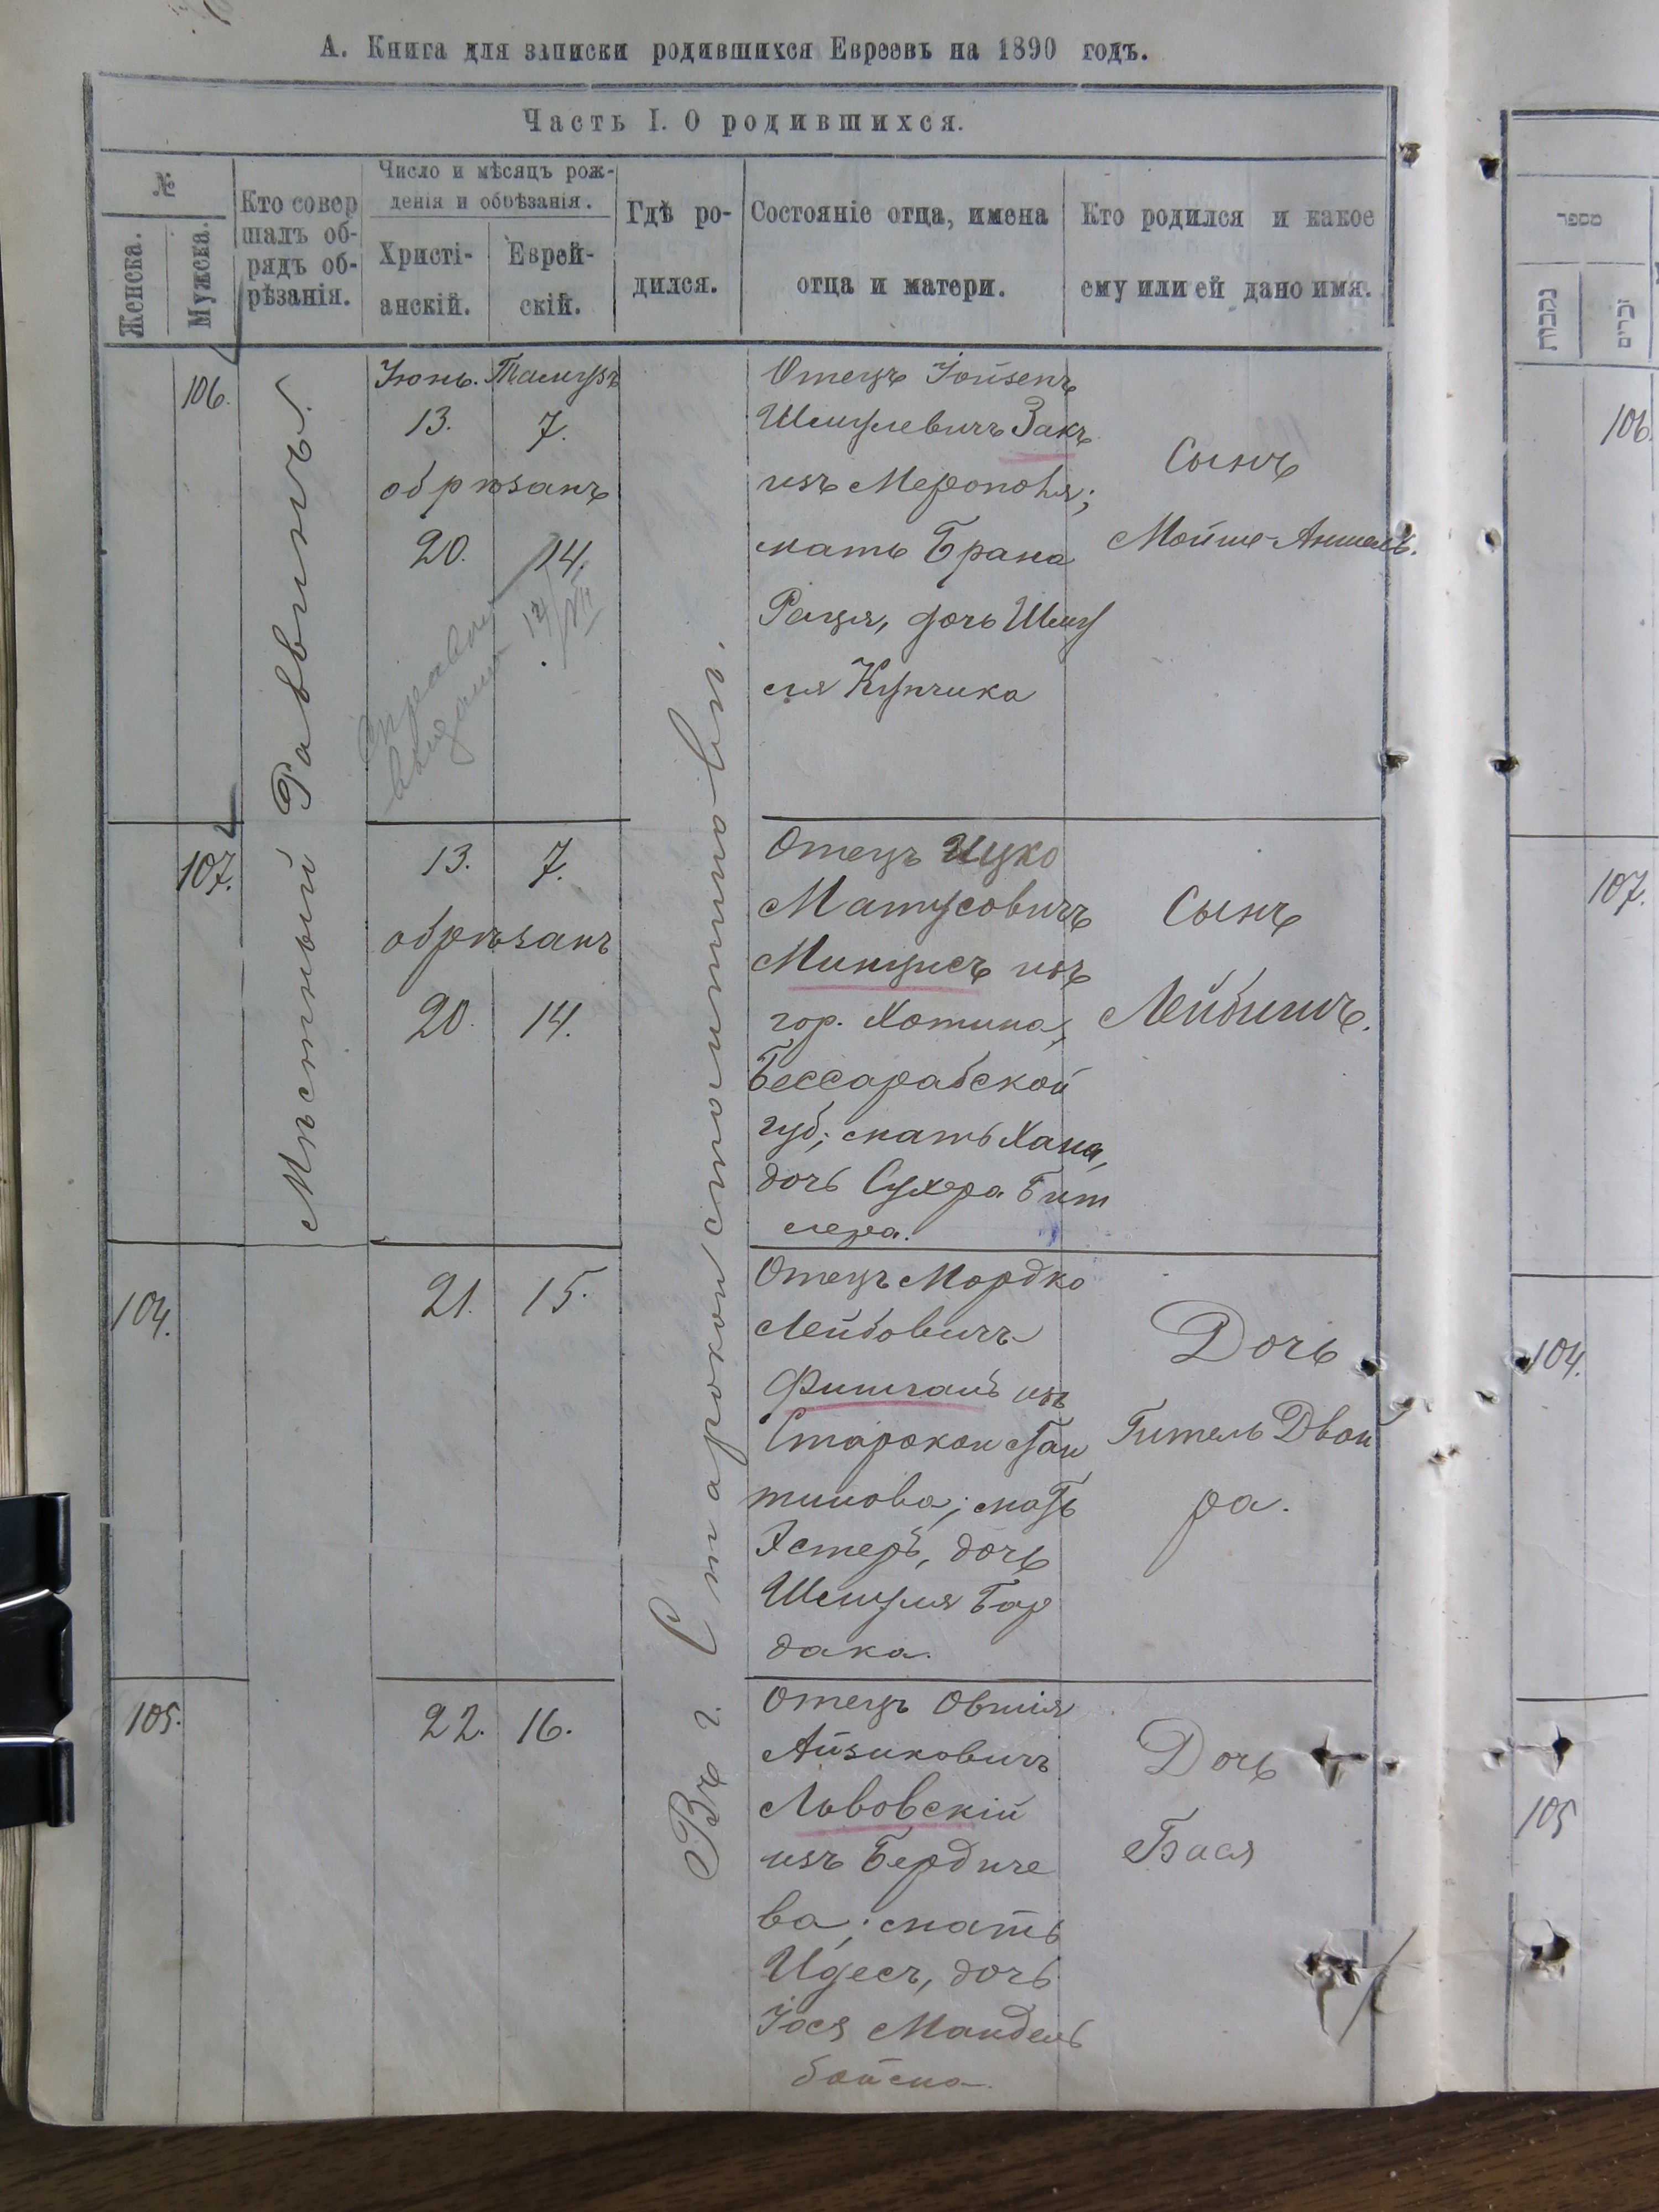 А. Книга для записки родившихся Евреевъ на 1890 годъ.
Часть I. О родившихся.
№
Женска.
Мужска.
Кто совер
шалъ об-
рядъ об-
рѣзанія.
Число и мѣсяцъ рож-
денія и обрѣзанія.
Христі-
анскій.
Еврей-
скій.
Гдѣ ро-
дился.
Состояніе отца, имена
отца и матери.
Кто родился и какое
ему или ей дано имя.
Мѣстный Раввинъ.
Въ г. Староконстантиновѣ.
106.
Іюнь. Тамузъ
13. 7.
обрѣзанъ
20. 14.
12/VII
Отецъ Іойсенъ
Шмулевичъ Закъ
изъ Мерополя;
мать Брана
Раця, дочь Шму
ля Купчика
Сынъ
Мойше-Аншель.
107.
13. 7.
обрѣзанъ
20. 14.
Отецъ Ицко
Матусовичъ
изъ
гор. Хотина,
Бессарабской
губ; мать Хана,
дочь Сухера Бит
лера.
Сынъ
Лейбишъ.
104.
21. 15.
Отецъ Мордко
Лейбовичъ
Фишманъ изъ
Старокон стан
тинова; мать
Эстеръ, дочь
Шмуля Бар
дака.
Дочь
Гитель Двой
ра.
105.
22. 16.
Отецъ Овшія
Айзиковичъ
Львовскій
изъ Бердиче
ва; мать
Идесъ, дочь
Іося Мандель
бойма.
Дочь
Бася
מספר
נקבות
זכרים
106.
107.
104.
105